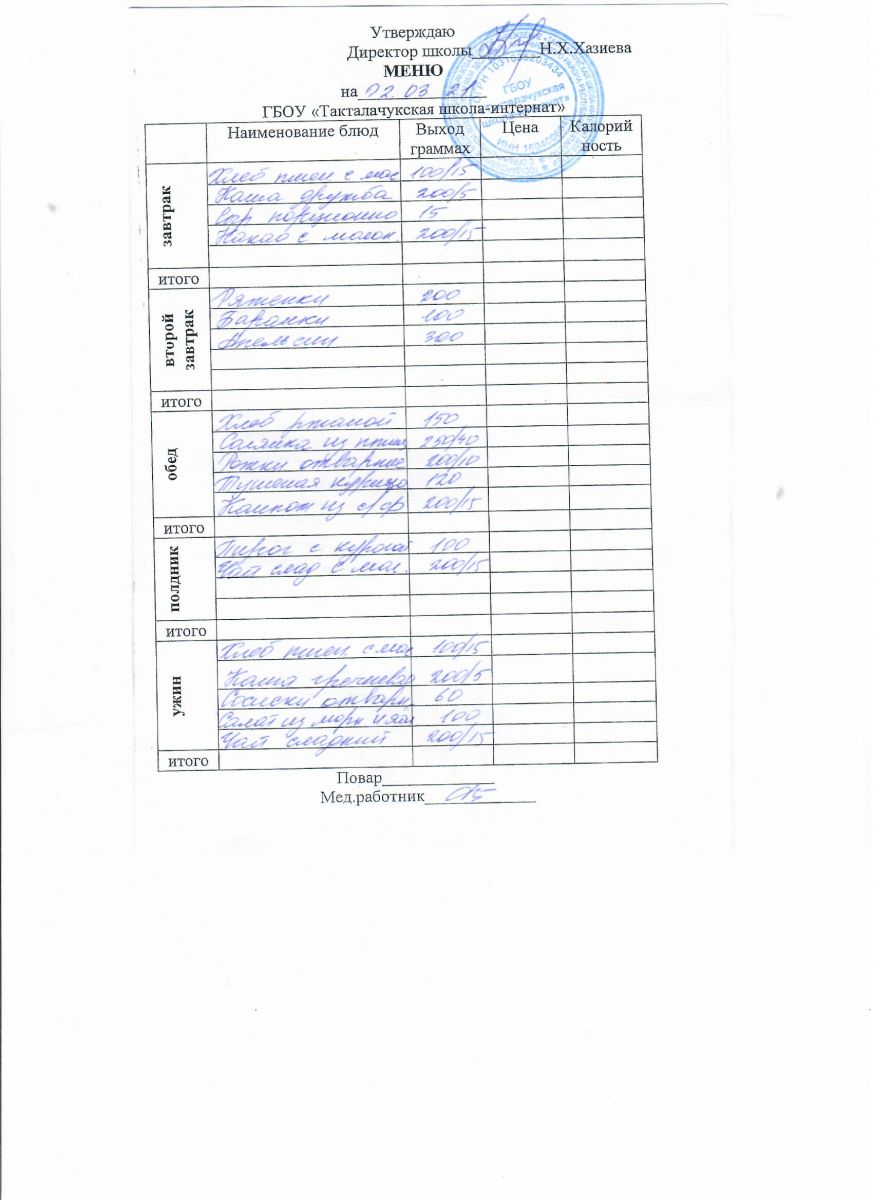 Утверждаю
Директор школы________Н.Х.Хазиева
МЕНЮ
на 02.03 21
ГБОУ «Такталачукская школа-интернат»
Наименование блюд Выход граммах Цена Калорий ность
завтрак
Хлеб пшен с мас 100/15
Каша дружба 200/5
Сыр порционно 15
Какао с молок. 200/15
итого
второй завтрак
Ряженки 200
Баранки 100
Апельсин 300
итого
обед
Хлеб ржаной 150
Солянка из птиц 250/40
Рожки отварные 200/10
Тушеная курица 120
Компот из с/ф 200/15
итого
полдник
Пирог с курагой 100
Чай слад с мол. 200/15
итого
ужин
Хлеб пшен. с мас 100/15
Каша гречневая 200/5
Сосиски отварн. 60
Салат из морк и ябл 100
Чай сладкий 200/15
итого
Повар_____________
Мед.работник_____________